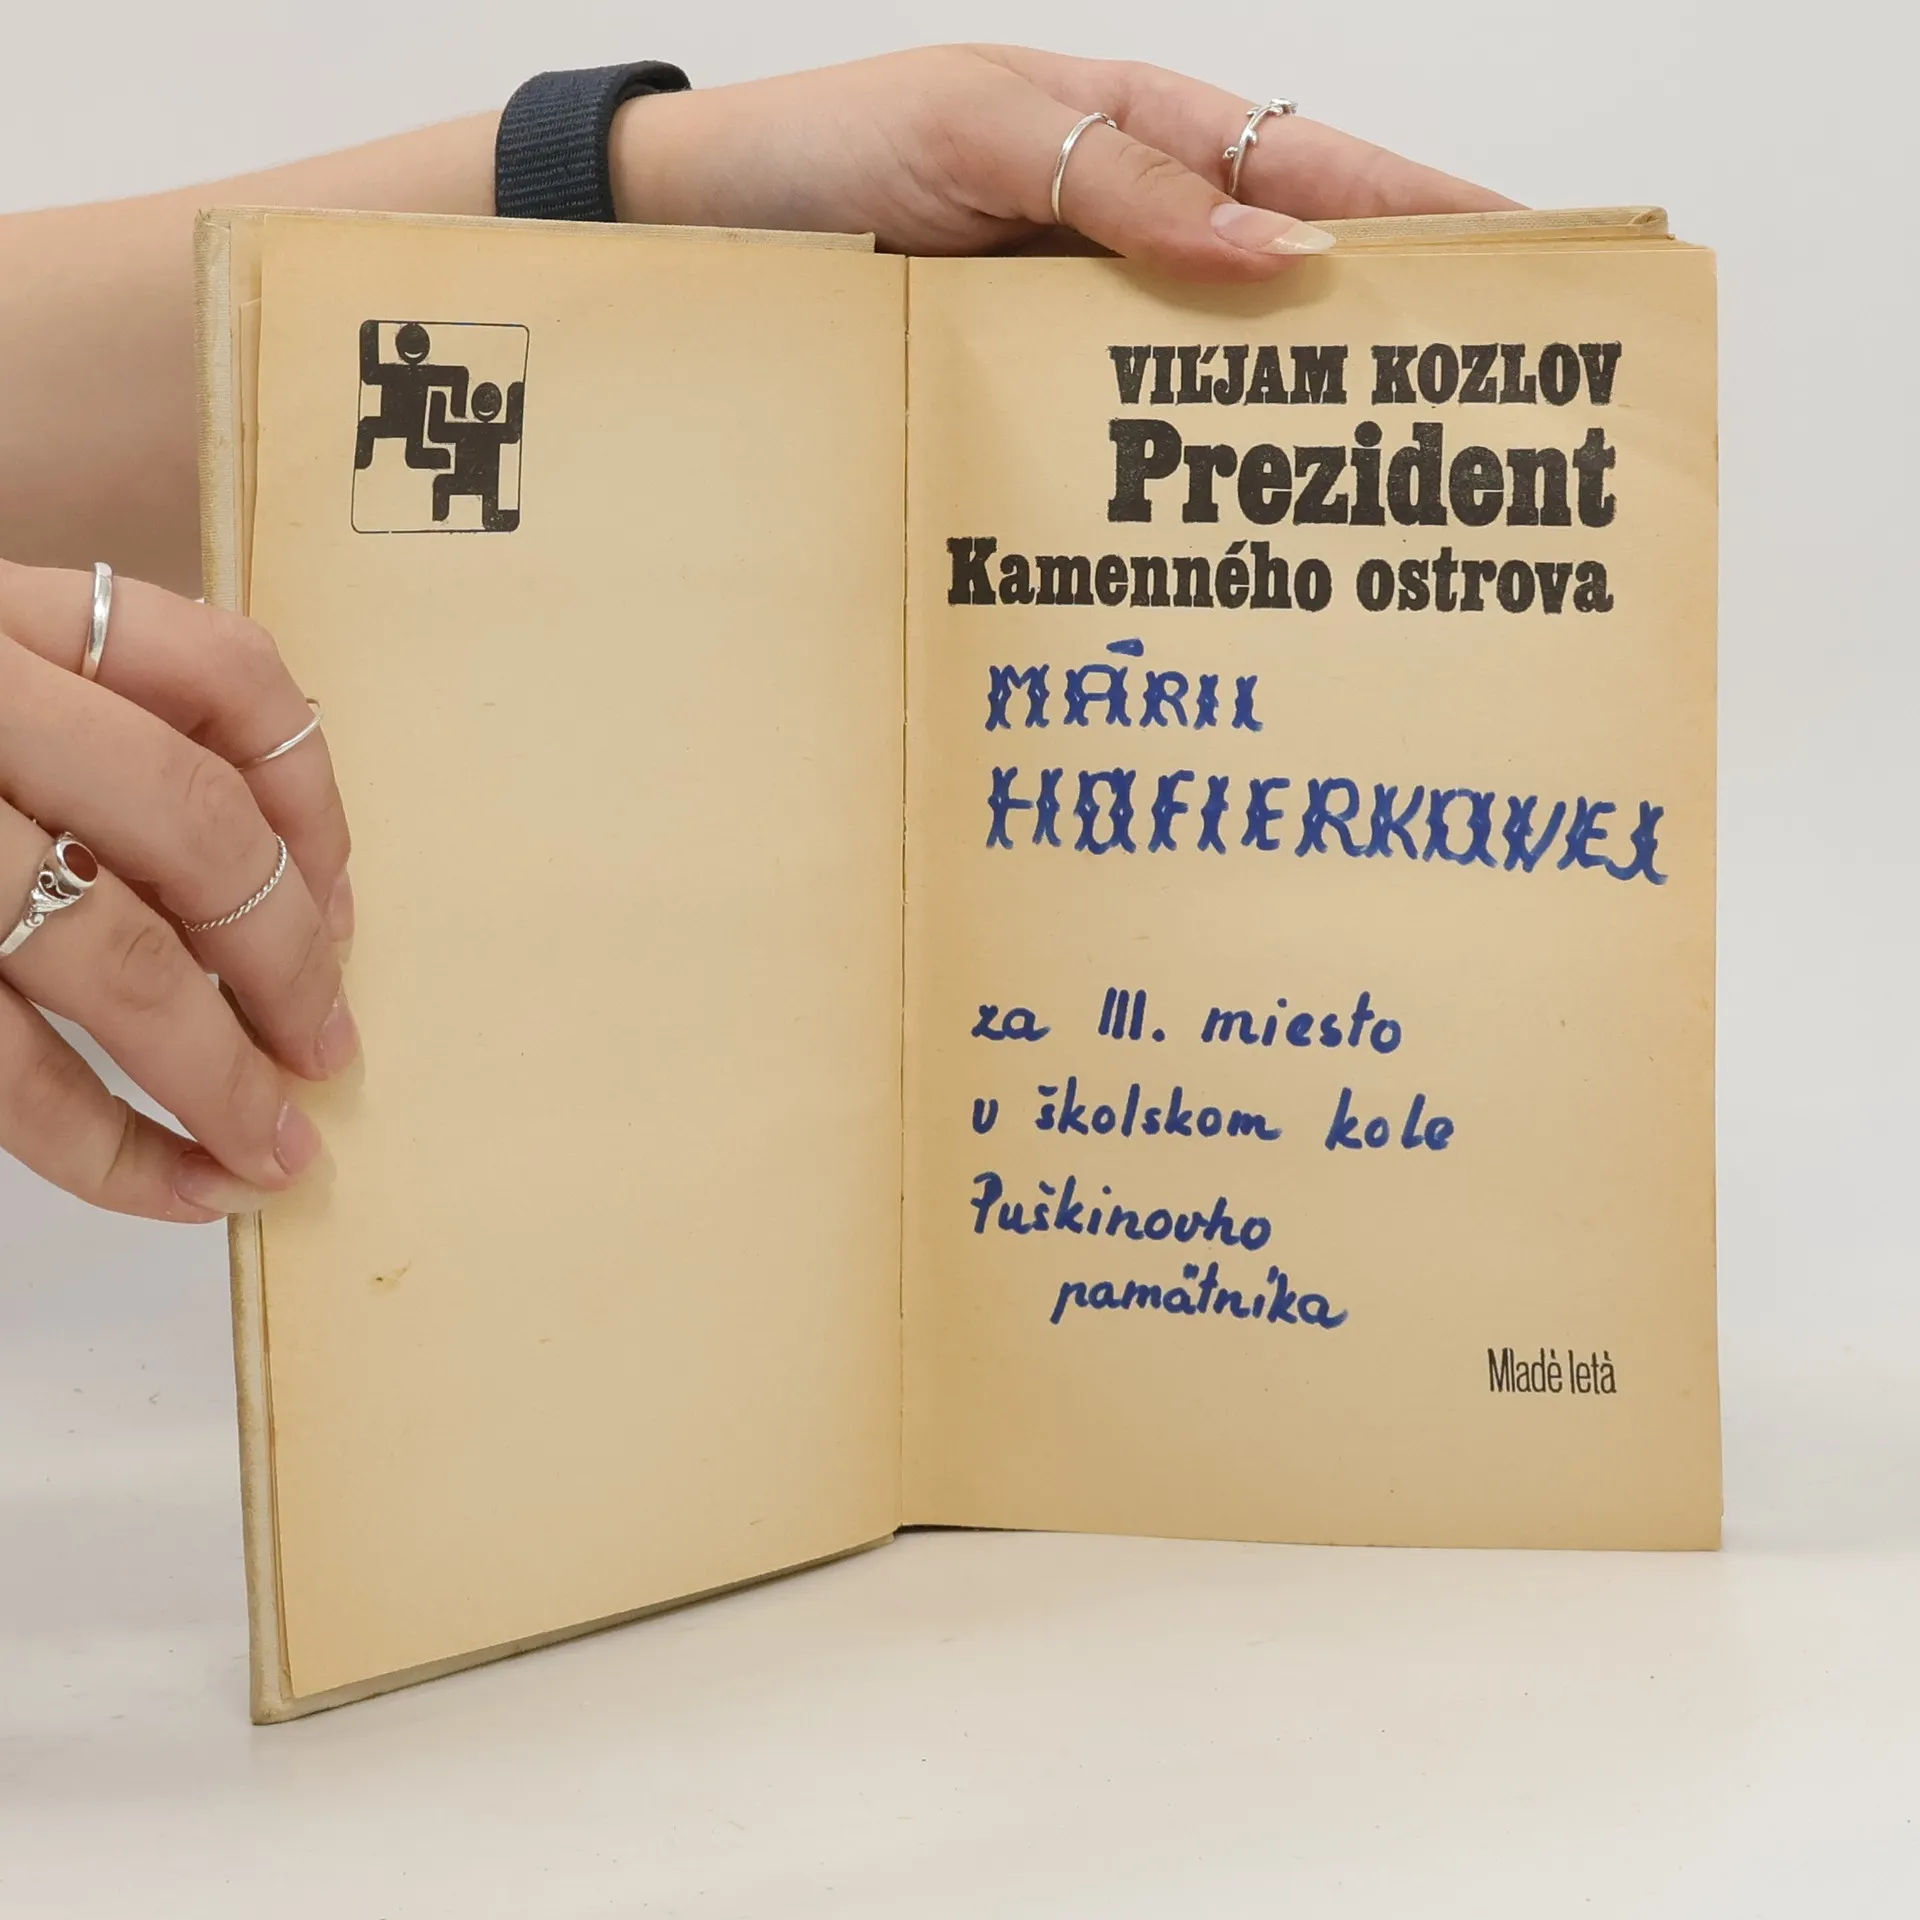 VIĽJAM KOZLOV
Prezident
Kamenného ostrova
MÁRII
HOFIERKOVEJ
za III. miesto
v školskom kole
Puškinovho
pamätníka
Mladé letá